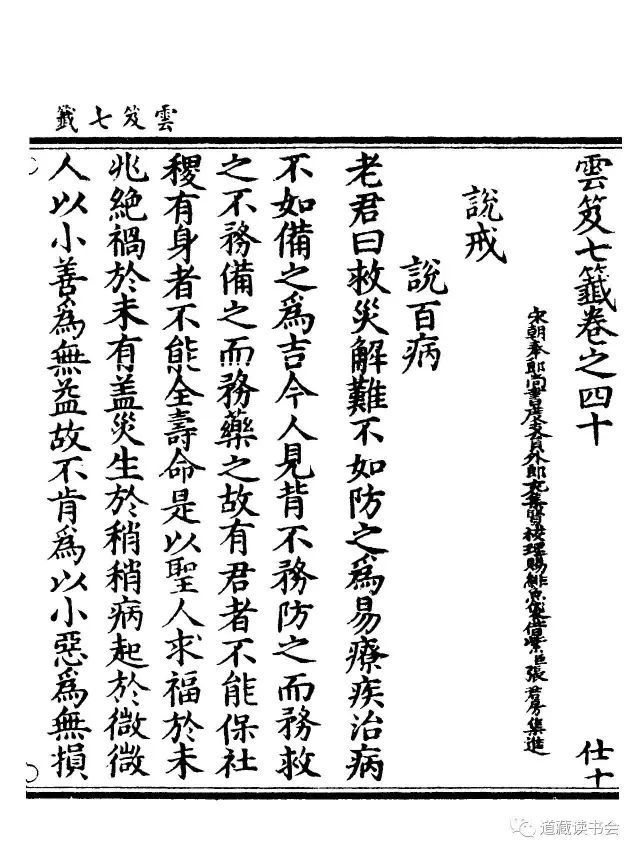 雲笈七籤
雲笈七籤卷之四十 仕十
宋朝奉郎尚書度支員外郎充集賢校理賜緋魚袋借紫臣張君房集進
說戒
說百病
老君曰救災解難不如防之爲易療疾治病
不如備之爲吉今人見背不務防之而務救
之不務備之而務藥之故有君者不能保社
稷有身者不能全壽命是以聖人求福於未
兆絶禍於未有盖災生於稍稍病起於微微
人以小善爲無益故不肯爲以小惡爲無損
道藏读书会